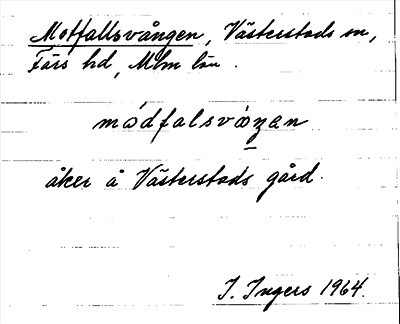 Motfallsvången, Västerstads sn,
Färs hd, Mlm län.
módfalsvàŋan
åker å Västerstads gård.
I. Ingers 1964.